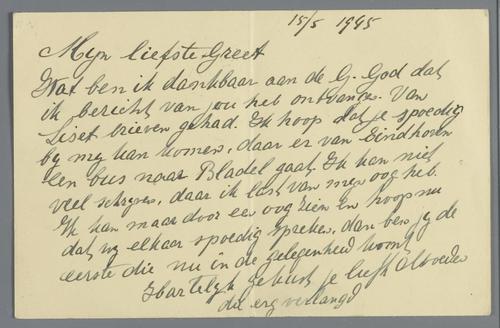 15/5 1945
Mijn liefste Greet
Wat ben ik dankbaar aan de G. God dat
ik bericht van jou heb ontvangen. Van
Liset brieven gehad. Ik hoop dat je spoedig
bij mij kan komen, daar er van Eindhoven
een bus naar Bladel gaat. Ik kan niet
veel schrijven, daar ik last van mijn oog heb.
Ik kan maar door een oog zien en hoop nu
dat wij elkaar spoedig spreken, dan ben jij de
eerste die nu in de gelegenheid komt
Hartelijk gekust je liefh
die erg verlangd